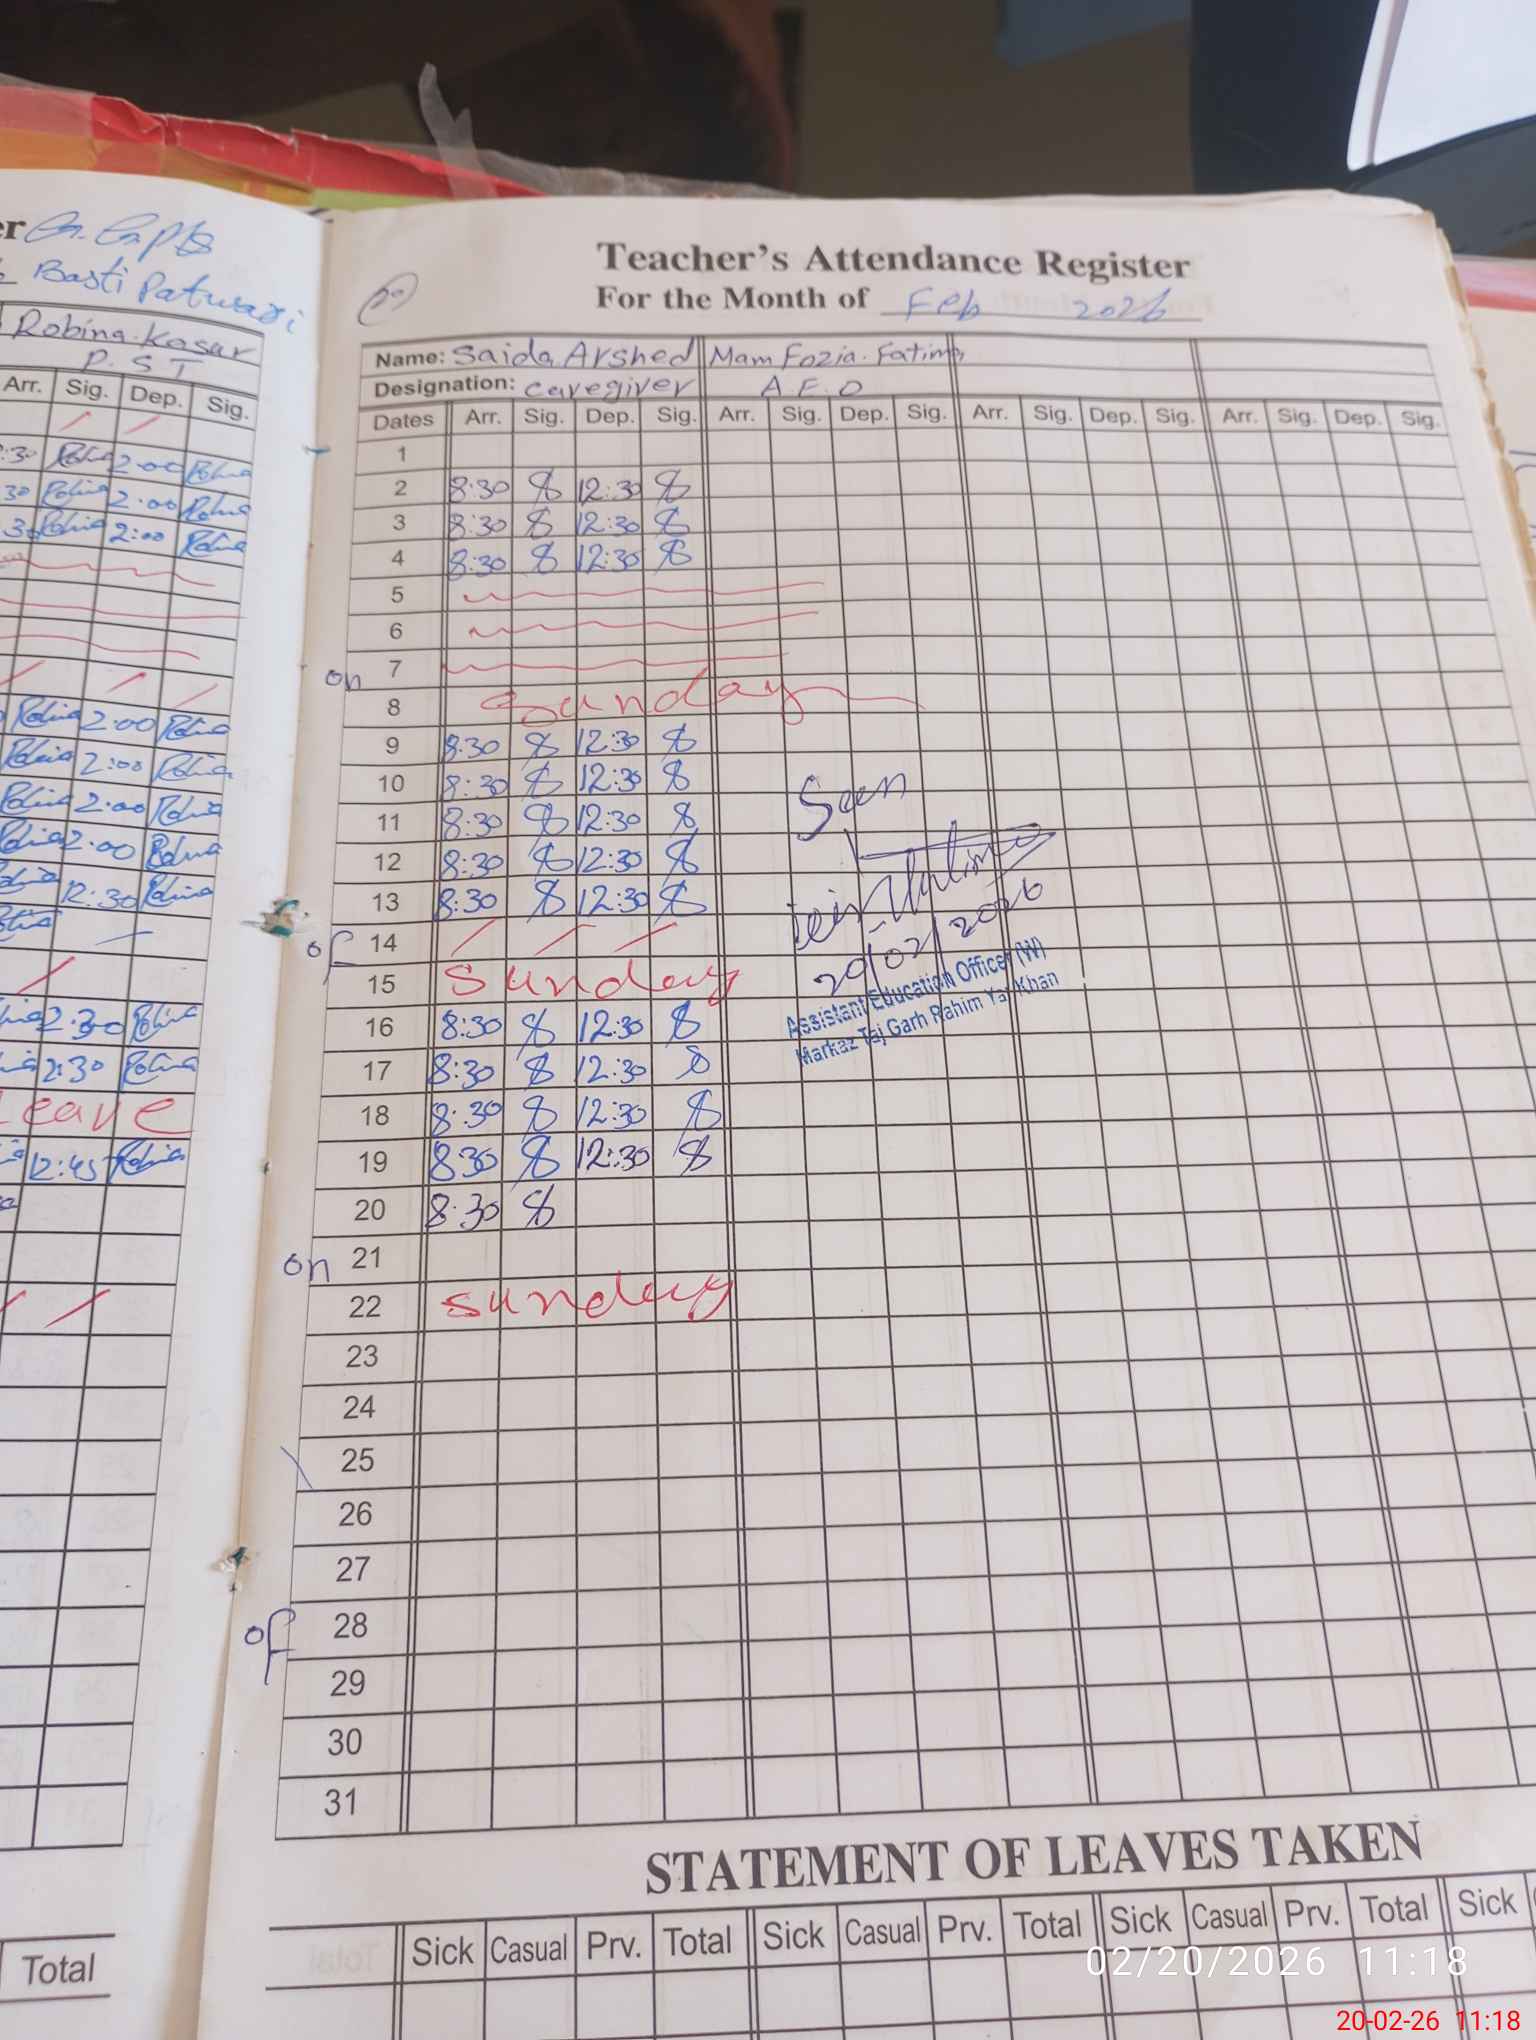 er G. Gpps
Basti Patwari
Robina Kosar
P.S.T
Arr. Sig. Dep. Sig.
:30 2.00
30 2.00
30 2:00
2.00
2:00
2.00
2.00
12:30
2:30
2:30
Leave
12:45
Total
Teacher's Attendance Register
For the Month of Feb 2026
Name: Saida Arshed Mam Fozia Fatima
Designation: Caregiver A.E.O
Dates Arr. Sig. Dep. Sig. Arr. Sig. Dep. Sig. Arr. Sig. Dep. Sig. Arr. Sig. Dep. Sig.
1
2 8:30 12:30
3 8:30 12:30
4 8:30 12:30
5
6
on 7
8 Sunday
9 8:30 12:30
10 8:30 12:30
Seen
11 8:30 12:30
12 8:30 12:30
13 8:30 12:30
of 14
20/02/2026
15 Sunday
Assistant Education Officer (W)
Markaz Taj Garh Rahim Yar Khan
16 8:30 12:30
17 8:30 12:30
18 8:30 12:30
19 830 12:30
20 8:30
on 21
22 Sunday
23
24
25
26
27
of 28
29
30
31
STATEMENT OF LEAVES TAKEN
Sick Casual Prv. Total Sick Casual Prv. Total Sick Casual Prv. Total Sick
02/20/2026 11:18
20-02-26 11:18